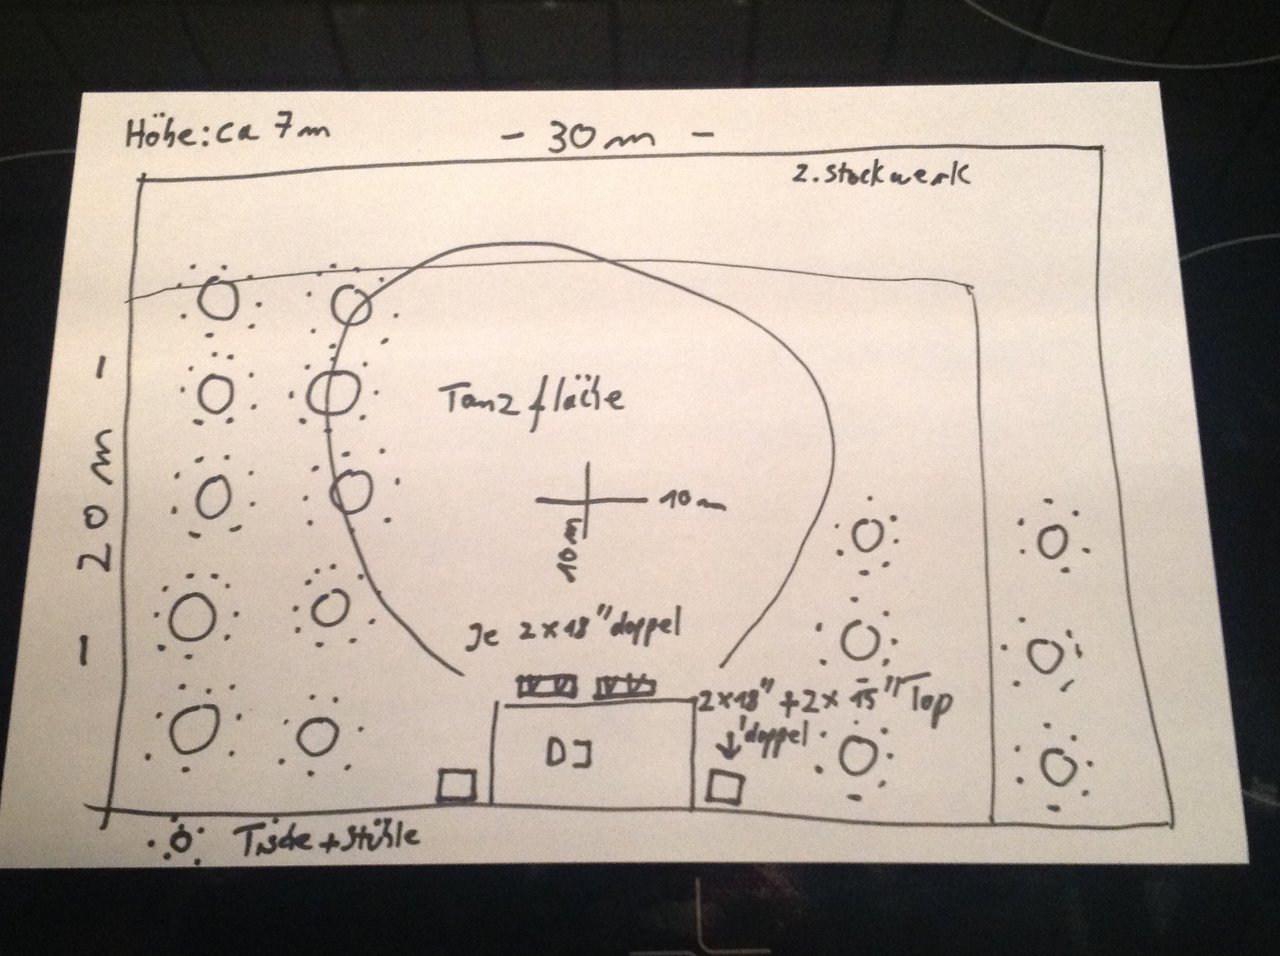 Höhe: ca 7m
- 30 m -
2. Stockwerk
- 20 m -
Tanzfläche
10 m
10 m
Je 2x18" doppel
2x18" + 2x 15" Top
doppel
DJ
Tische + Stühle